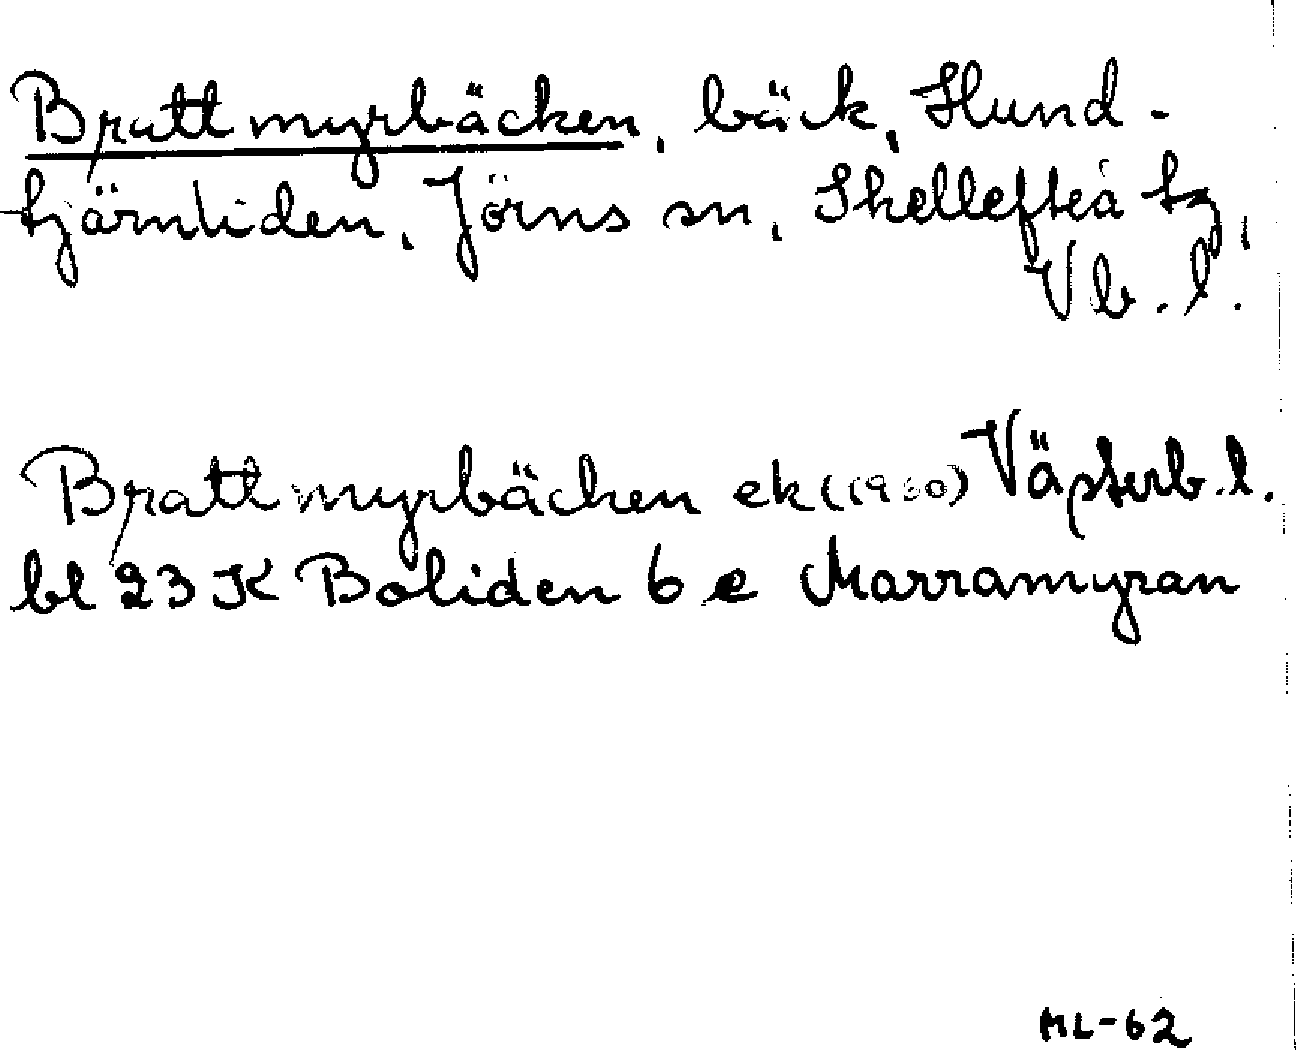 Brattmyrbäcken, bäck, Hund-
tjärnliden, Jörns sn, Skellefteå tg,
Vb. l.
Brattmyrbäcken ek (1960) Västerb. l.
bl 23 K Boliden 6 e Marramyran
ML-62